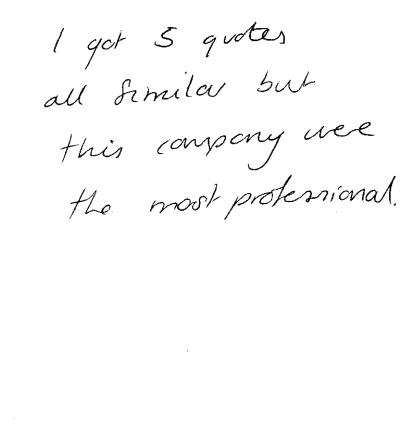 I got 5 quotes
all similar but
this company were
the most professional.